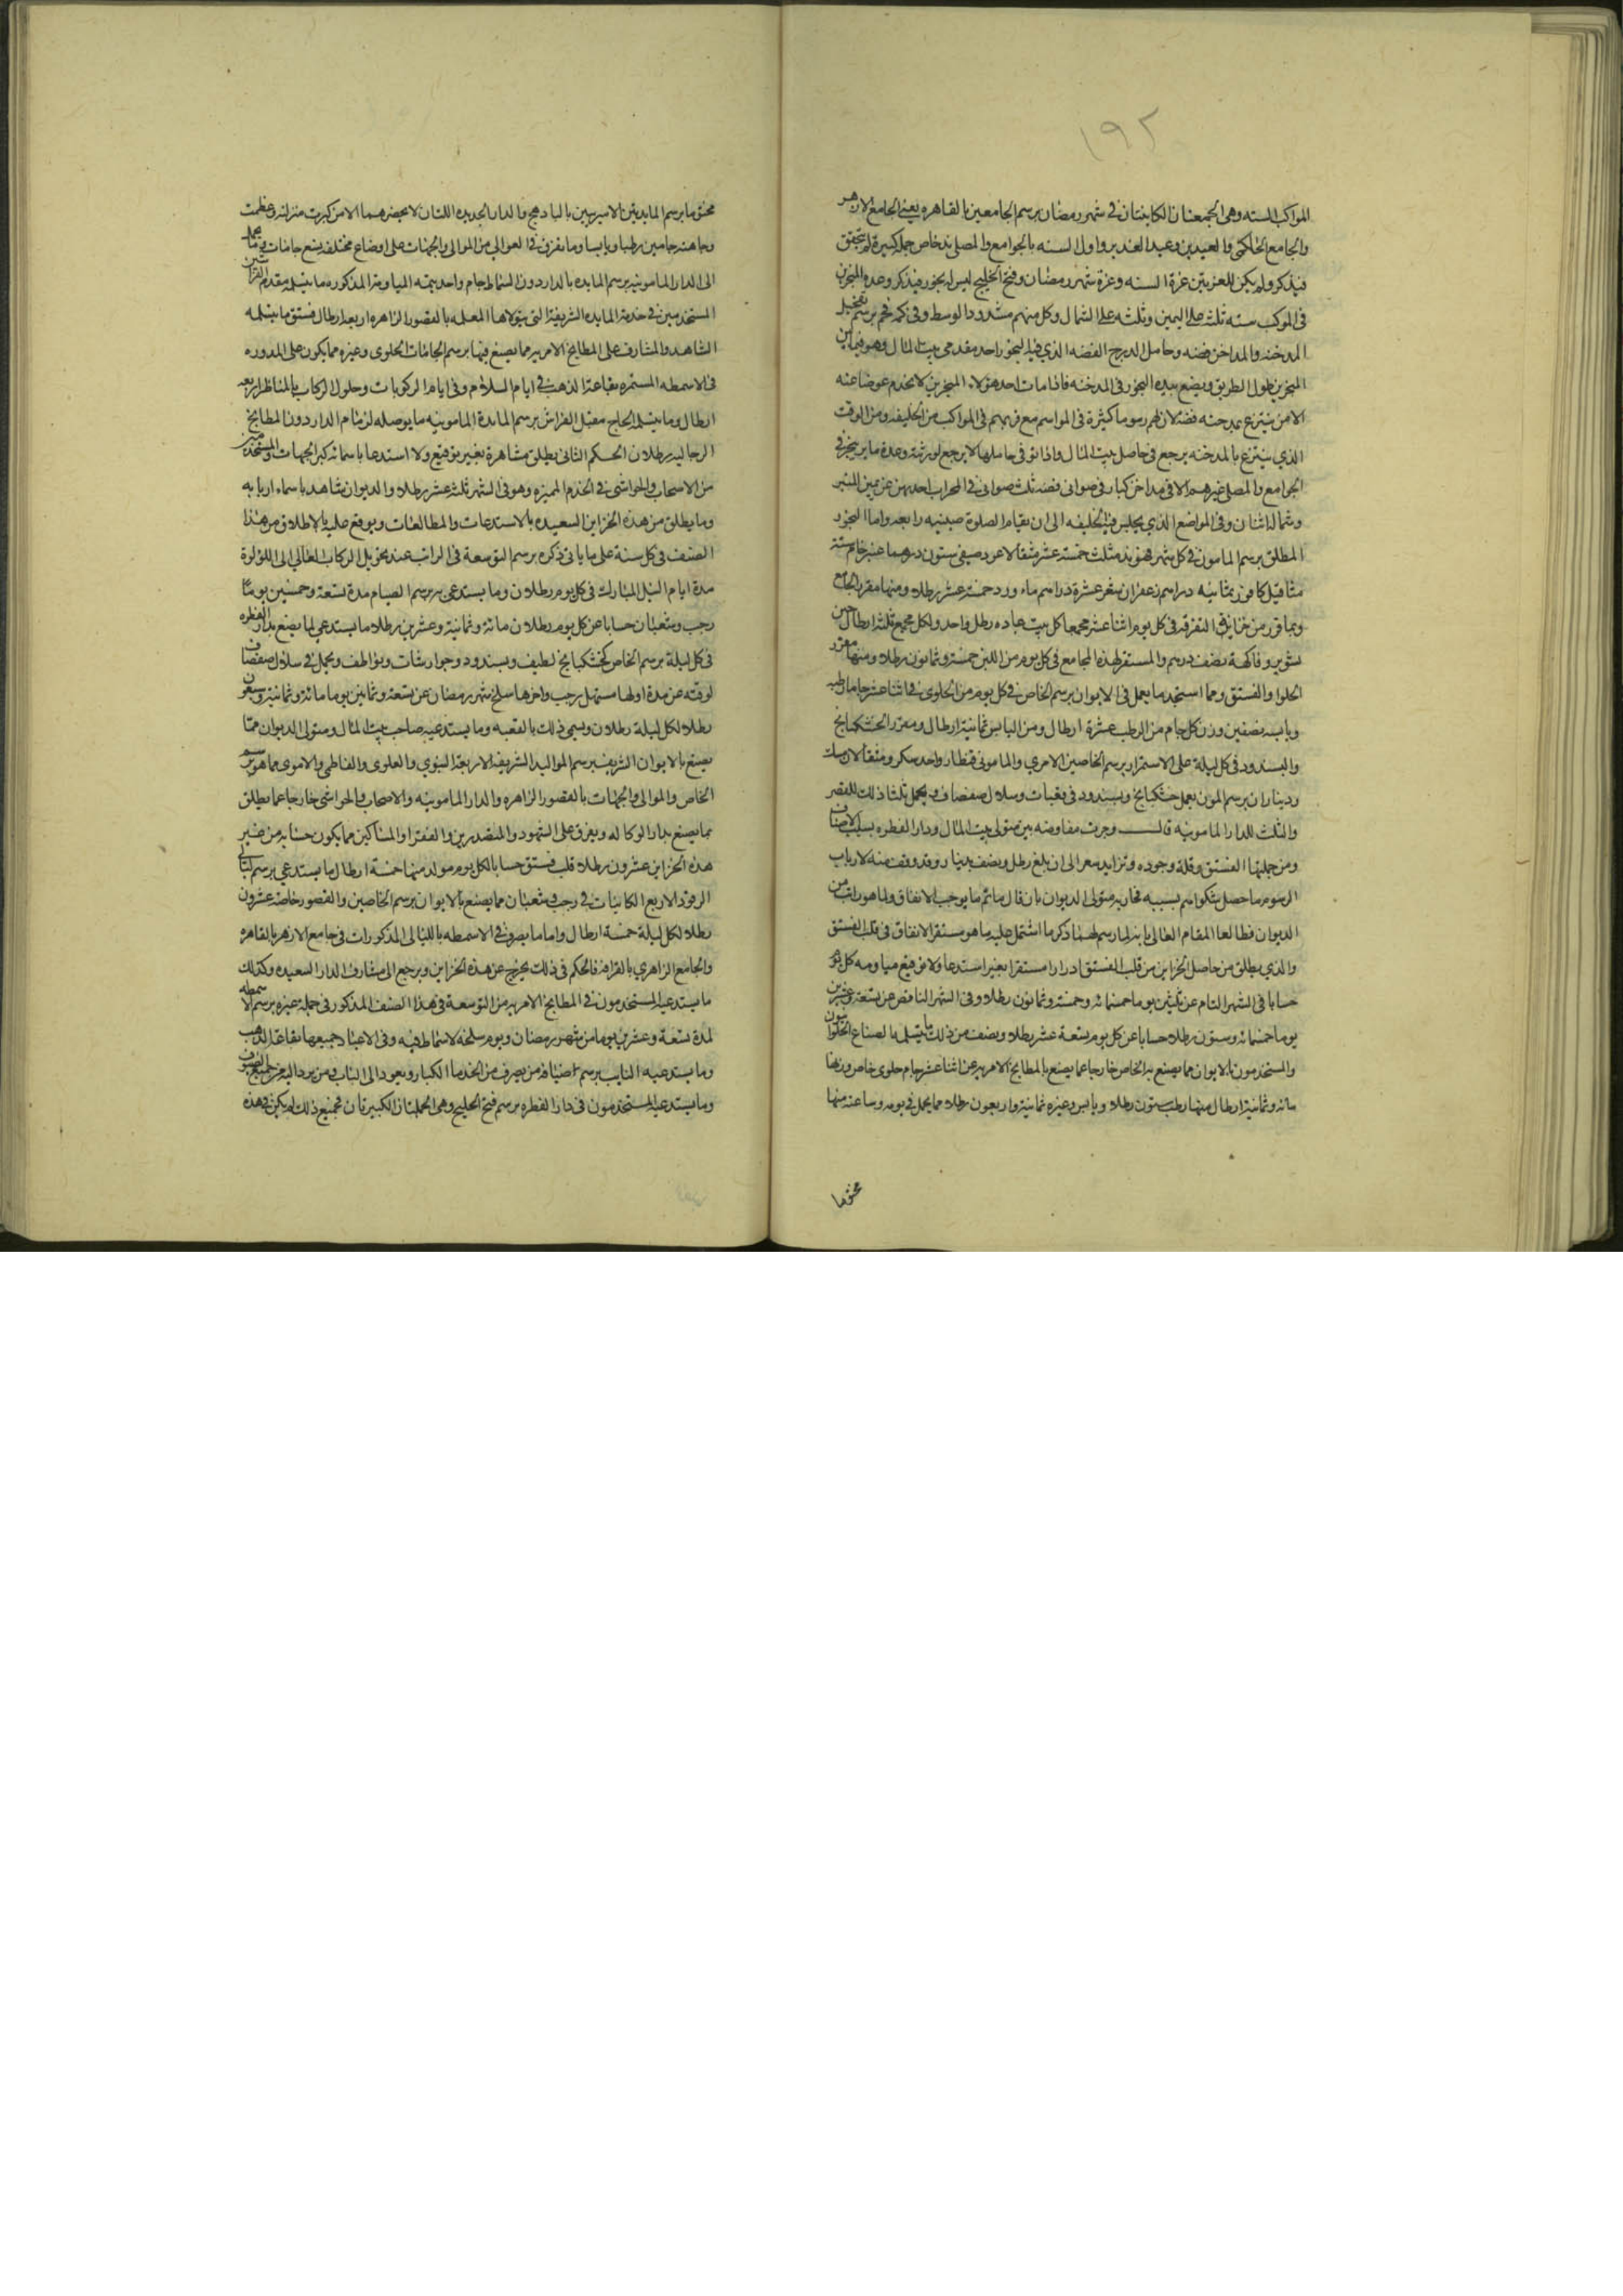 ١٩٢
المواكب السته وهى الجمعتان الكاينتان فى شهر رمضان برسم الجامعين بالقاهره يعنى الجامع الازهر
والجامع الحاكمى والعيدين وعيد الغدير واول السنه بالجوامع والمصلى ند خاص جمله كبيرة لم تتحقق
فيذكر ولم يكن للغرتين غرة السنه وغرة شهر رمضان وفتح الخليج لبس له بخور فيذكر وعدة المبخرين
فى الموكب سته ثلثه على اليمين وثلثه على الشمال وكل منهم مشدود الوسط وفى كمه فحم برسم تعجيل
المدخنه والمداخن فضه وحامل الدرج الفضه الذي فيه البخور احد مقدمى بيت المال وهو فيما بين
المبخرين طول الطريق ويضع بيده البخور فى المدخنه فاذا مات احد هولاء المبخرين لا يخدم عوضا عنه
الا من يتبرع بمدخنه فضه لان لهم رسوما كثيرة فى المواسم مع قربهم فى المواكب من الخليفه ومن الوقت
الذي يتبرع بالمدخنه يرجع فى حاصل بيت المال واذا توفى حاملها لا يرجع لورثته وعدة ما يبخر فى
الجوامع والمصلى غير هم الا فى مداخن كبار فى صوانى فضه ثلث صوانى فى المحراب احدهن عن يمين المنبر
وشماله اثنان وفى المواضع الذي يجلس فيه الخليفه الى ان تقام الصلوة صينيه رابعه واما البخور
المطلق برسم المامونى فى كل شهر فهو ند مثلث خمسه عشر مثقالا عود صيفى ستون درهما عنبر خام سته
مثاقيل كافور ثمانيه دراهم زعفران شعر عشرة دراهم ماء ورد خمسه عشر رطلا ومنها مقرر الجامع
وما قرر من خبز فى التفرقه فى كل يوم اثنا عشر مجمعا كل بيت عباده رطل واحد ولكل مجمع ثلثه ارطال جبن
بشوير وفاكهة بنصف درهم والمستقر لهذه المجامع فى كل يوم من اللبن خمسه وثمانون رطلا ومنها مقرر
الحلوا والفستق ومما استجد ما يعمل فى الايوان برسم الخاص فى كل يوم من الحلوى فى اثنا عشر جاما رطبه
ويابسه نصفين وزن كل جام من الرطب عشرة ارطال ومن اليابس ثمانية ارطال ومقرر الخشكنانج
والبسندود فى كل ليلة على الاستمرار برسم الخاصين الامري والمامونى قنطار واحد سكر ومثقالان مسك
وديناران برسم المون يعمل خشكنانج وبسندود فى قعبات وسلال صفصاف ويحمل ثلثا ذلك للقصر
والثلث للدار المامونيه قال وجرت مفاوضه بين متولى بيت المال ودار الفطره بسبب الاصناف
ومن جملتها الفستق وقلة وجوده وتزايد سعر الى ان بلغ رطل ونصف بدينار وقد وقف منه لارباب
الرسوم ما حصل شكواهم بسببه فجاوبه متولى الديوان بان قال ما ثم ما يوجب الانفاق ولما هو راتب من
الديوان فطالعا المقام العالى بانه لما رسم لهما ذكر ما اشتمل عليه ما هو مستقر الانفاق فى قلب الفستق
والذي يطلق من حاصل الخزاين من قلب الفستق ادرارا مستقرا بغير استدعا ولا توقيع مياومه كل يوم
حسابا فى الشهر التام عن ثلثين يوما خمسمائه وخمسه وثمانون رطلا وفى الشهر الناقص عن تسعة وعشرين
يوما خمسمائه وستون رطلا حسابا عن كل يوم تسعة عشر رطلا ونصف من ذلك ما يتسلمه الصناع الحلوانيون
والمستخدمون بالايوان مما يصنع به الخاص خارجا عما يصنع بالمطابخ الامريه عن اثنا عشر جام حلوى خاص وزنها
مائه وثمانية ارطال منها رطب ستون رطلا ويابس وغيره ثمانية واربعون رطلا مما يحمل فى يومه وساعته منها
مختوما
مختوما برسم المايدتين الاميريتين بالباذهنج والدار الجديده اللتان لا يحضرهما الا من كبرت منزلته وعظمت
وجاهته جامين رطبا ويابسا وما يفرق فى العوالى من الموالى والجهات على اوضاع مختلفه تسع جامات وما يحمل
الى الدار المامونيه برسم المايده بالدار دون السماط جام واحد تتمه المياومه المذكوره ما يتسلمه مقدم الفراشين
المستخدمين فى خدمة المايده الشريفه التى تتولاها المعلمه بالقصور الزاهره اربعه ارطال فستق ما يتسلمه
الشاهد والمشارف على المطابخ الامريه مما يصنع فيها برسم الجامات الحلوى وغيره مما يكون على المدوره
فى الاسمطه المستمره بقاعة الذهب فى ايام السلام وفى ايام الركوبات وحلول الركاب بالمناظر اربعه
ارطال وما يتسلمه الحاج مقبل الفراش برسم المايدة المامونيه ما يوصله لزمام الدار دون المطابخ
الرجاليه رطلان الحكم الثانى يطلق مشاهرة بغير توقيع ولا استدعا باسماء كبراء الجهات والمستخدمين
من الاصحاب والحواشى فى الخدم المميزه وهو فى الشهر ثلثه عشر رطلا والديوان شاهد باسماء اربابه
وما يطلق من هذه الخزاين السعيده بالاستدعات والمطالعات ويوقع عليه بالاطلاق من هذا
الصنف فى كل سنة على ما ياتى ذكره برسم التوسعة فى الراتب عند تحويل الركاب العالى الى اللؤلؤة
مدة ايام النيل المبارك فى كل يوم رطلان وما يستدعى به برسم الصيام مدة تسعه وخمسين يوما
رجب وشعبان حسابا عن كل يوم رطلان مائة وثمانية وعشرين رطلا ما يستدعى لما يصنع بدار الفطره
فى كل ليلة برسم الخاص كخشكنانج لطيف وبسندود وجوارشات ونواطف ويحمل فى سلال صفصاف
لوقته عن مدة اولها مستهل رجب واخرها سلخ شهر رمضان عن تسعة وثمانين يوما مائة وثمانية وسبعون
رطلا لكل ليلة رطلان ويسمى ذلك بالتعبيه وما يستدعيه صاحب بيت المال ومتولى الديوان مما
يصنع بالايوان الشريف برسم المواليد الشريفة الاربعة النبوي والعلوى والفاطمى والامرى مما هو برسم
الخاص والموالى والجهات بالقصور الزاهره والدار المامونيه والاصحاب والحواشى خارجا عما يطلق
مما يصنع بدار الوكاله ويفرق على الشهود والمتصدرين والفقرا والمساكين مما يكون حسابه من غير
هذه الخزاين عشرون رطلا قلب فستق حسابا لكل يوم مولد منها خمسة ارطال ما يستدعى برسم ليالى
الوقود الاربع الكاينات فى رجب وشعبان مما يصنع بالايوان برسم الخاصين والقصور خاصة عشرون
رطلا لكل ليلة خمسة ارطال واما ما يصرف فى الاسمطه بالليالى المذكورات فى جامع الازهر بالقاهره
والجامع الزاهري بالقرافه فالحكم فى ذلك يخرج عن هذه الخزاين ويرجع الى مشارف الدار السعيده وكذلك
ما يستدعيه المستخدمون فى المطابخ الامريه من التوسعة فى هذا الصنف المذكور فى جمله غيره برسم الاسمطه
لمدة تسعة وعشرين يوما من شهر رمضان ويوم سلخه لاسماط فيه وفى الاعياد جميعها بقاعة الذهب
وما يستدعيه النايب برسم ضيافة من يصرف من الخدما الكبار ويعود الى الباب ومن يرد اليه من جميع الضيوف
وما يستدعيه المستخدمون فى دار الفطره برسم فتح الخليج وهى الجملتان الكبيرتان فجميع ذلك لم يكن فى هذه